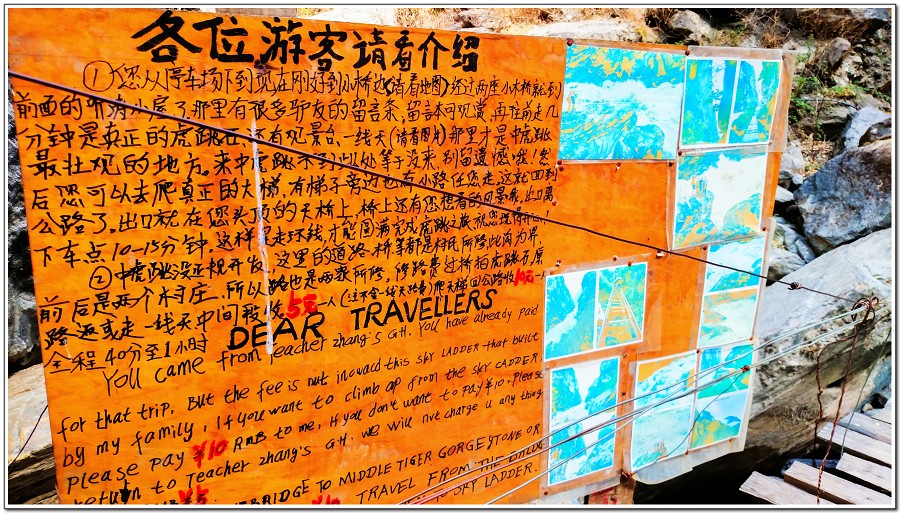 各位游客请看介绍
①您从停车场下到现在刚好到小桥边(请看地图)经过两座小木桥就到
前面的 小房了那里有很多驴友的留言条,留言本可观赏,再往前走几
分钟是真正的虎跳石,还有观景台、一线天(请看图片)那里才是中虎跳
最壮观的地方。来中虎跳不到此处等于没来,别留遗憾哦!然
后您可以去爬真正的天梯,有梯子旁边也有小路任您走,这就回到
公路了,出口就在您头顶的天桥上,桥上还有您想看的风景哦,出口离
下车点10-15分钟,这样是走环线,才能圆满完成虎跳之旅,祝您玩得开心!
②中虎跳没正规开发,这里的道路、桥等都是村民所修,此岗为界,
前后是两个村庄,所以路也是两家所修,修路费过桥拍虎跳石,原
路返或走一线天中间段收5元一人(注不含一线天路费)爬天梯回公路收10元一人
全程40分至1小时
DEAR TRAVELLERS
You came from Teacher zhang's G.H. You have already paid
for that trip, But the fee is not this SKY LADDER that built
by my family, If you want to climb up from the SKY LADDER
please pay ¥10 RMB to me, If you don't want to pay ¥10. Please
return to Teacher zhang's G.H. we will not charge u any thing
¥5 BRIDGE TO MIDDLE TIGER GORGE STONE OR
TRAVEL FROM THE BRIDGE
TO SKY LADDER.